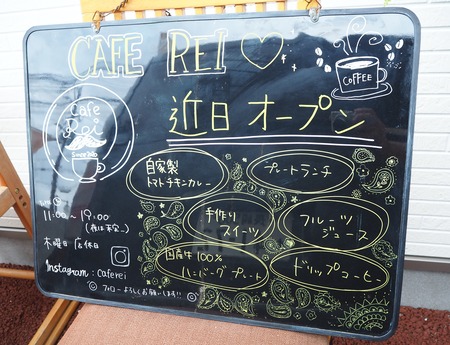 CAFE REI
COFFEE
Cafe
Rei
近日 オープン
自家製
トマトチキンカレー
プレートランチ
手作り
スイーツ
フルーツ
ジュース
国産牛 100%
ハンバーグ プレート
ドリップコーヒー
11:00~19:00
(夜は不定…)
木曜日 店休日
Instagram : caferei
フォローよろしくお願いします!!